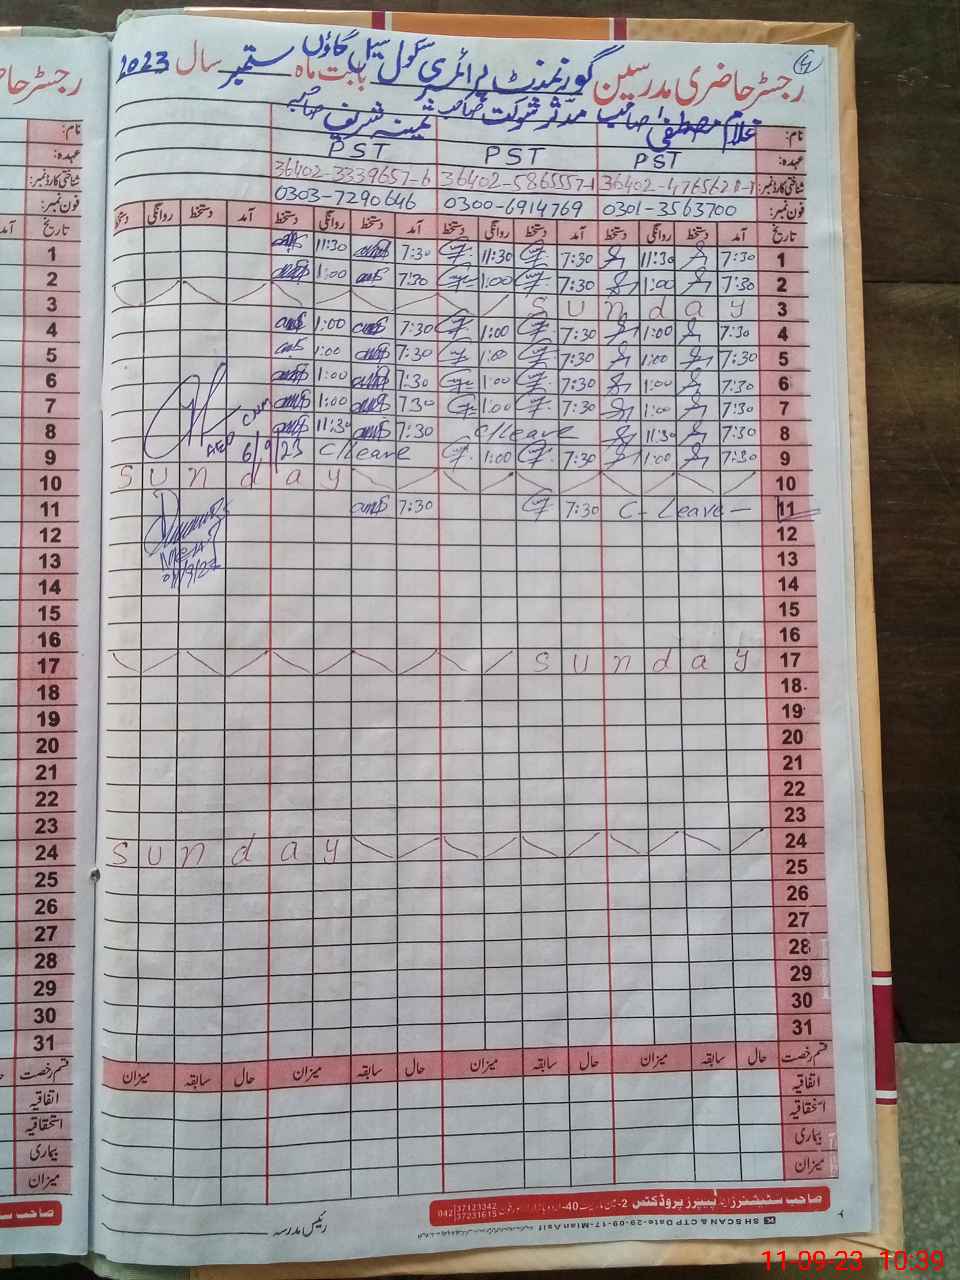 رجسٹر حاضری مدرسین گورنمنٹ پرائمری سکول گاؤں بابت ماہ ستمبر سال 2023
نام: غلام مصطفیٰ صاحب مدثر شوکت صاحب ثمینہ شریف صاحبہ
عہدہ: PST PST PST
شناختی کارڈ نمبر: 36402-5865557-1 36402-3339657-6
فون نمبر: 0301-3563700 0300-6914769 0303-7290646
تاریخ آمد دستخط روانگی دستخط آمد دستخط روانگی دستخط آمد دستخط روانگی دستخط دستخط روانگی دستخط
1 7:30 11:30 7:30 11:30 7:30 11:30 1
2 7:30 1:00 7:30 1:00 7:30 1:00 2
3 Sunday 3
4 7:30 1:00 7:30 1:00 7:30 1:00 4
5 7:30 1:00 7:30 1:00 7:30 1:00 5
6 7:30 1:00 7:30 1:00 7:30 1:00 6
7 7:30 1:00 7:30 1:00 7:30 1:00 7
8 7:30 11:30 C/Leave 7:30 11:30 8
9 7:30 1:00 7:30 1:00 C/Leave AEO 6/9/23 9
10 Sunday 10
11 C-Leave- 7:30 7:30 11
12 12
13 13
14 14
15 15
16 16
17 Sunday 17
18 18
19 19
20 20
21 21
22 22
23 23
24 Sunday 24
25 25
26 26
27 27
28 28
29 29
30 30
31 31
قسم رخصت حال سابقہ میزان حال سابقہ میزان حال سابقہ میزان حال سابقہ میزان قسم رخصت
اتفاقیہ اتفاقیہ
استحقاقیہ استحقاقیہ
بیماری بیماری
میزان میزان
صاحب سٹیشنرز اینڈ پیپرز پروڈکٹس 042 37123342 37231615
رئیس مدرسہ
SH SCAN & CTP Date-29-09-17-Mian Asif
11-09-23 10:39